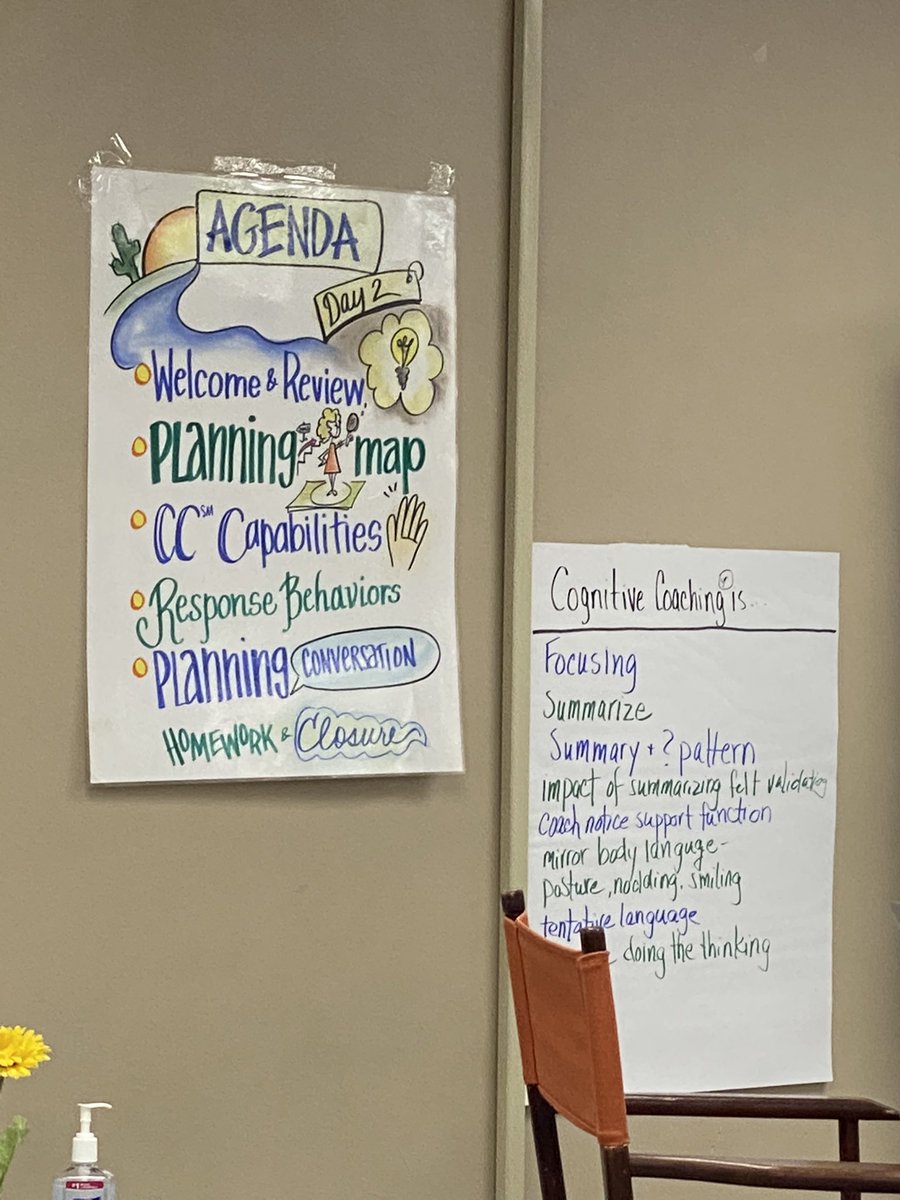 AGENDA
Day 2
Welcome & Review
Planning map
CC℠ Capabilities
Response Behaviors
Planning CONVERSATION
HOMEWORK & Closure
Cognitive Coaching is...
Focusing
Summarize
Summary + ? pattern
impact of summarizing felt validating
coach notice support function
mirror body language-
posture, nodding, smiling
tentative language
doing the thinking
#1